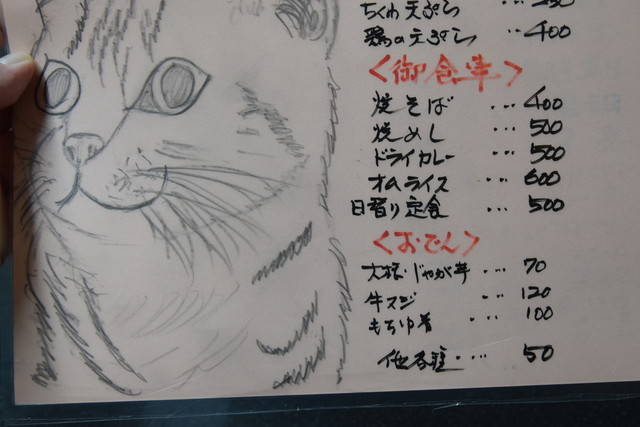 ちくわ天ぷら ‥‥
鶏の天ぷら ‥ 400
<御食事>
焼そば ‥‥ 400
焼めし ‥‥ 500
ドライカレー ‥‥ 500
オムライス ‥‥ 600
日替り定食 ‥‥ 500
<おでん>
大根・じゃが芋 ‥‥ 70
牛スジ ‥‥ 120
もちゆ着 ‥‥ 100
他各種 ‥‥ 50